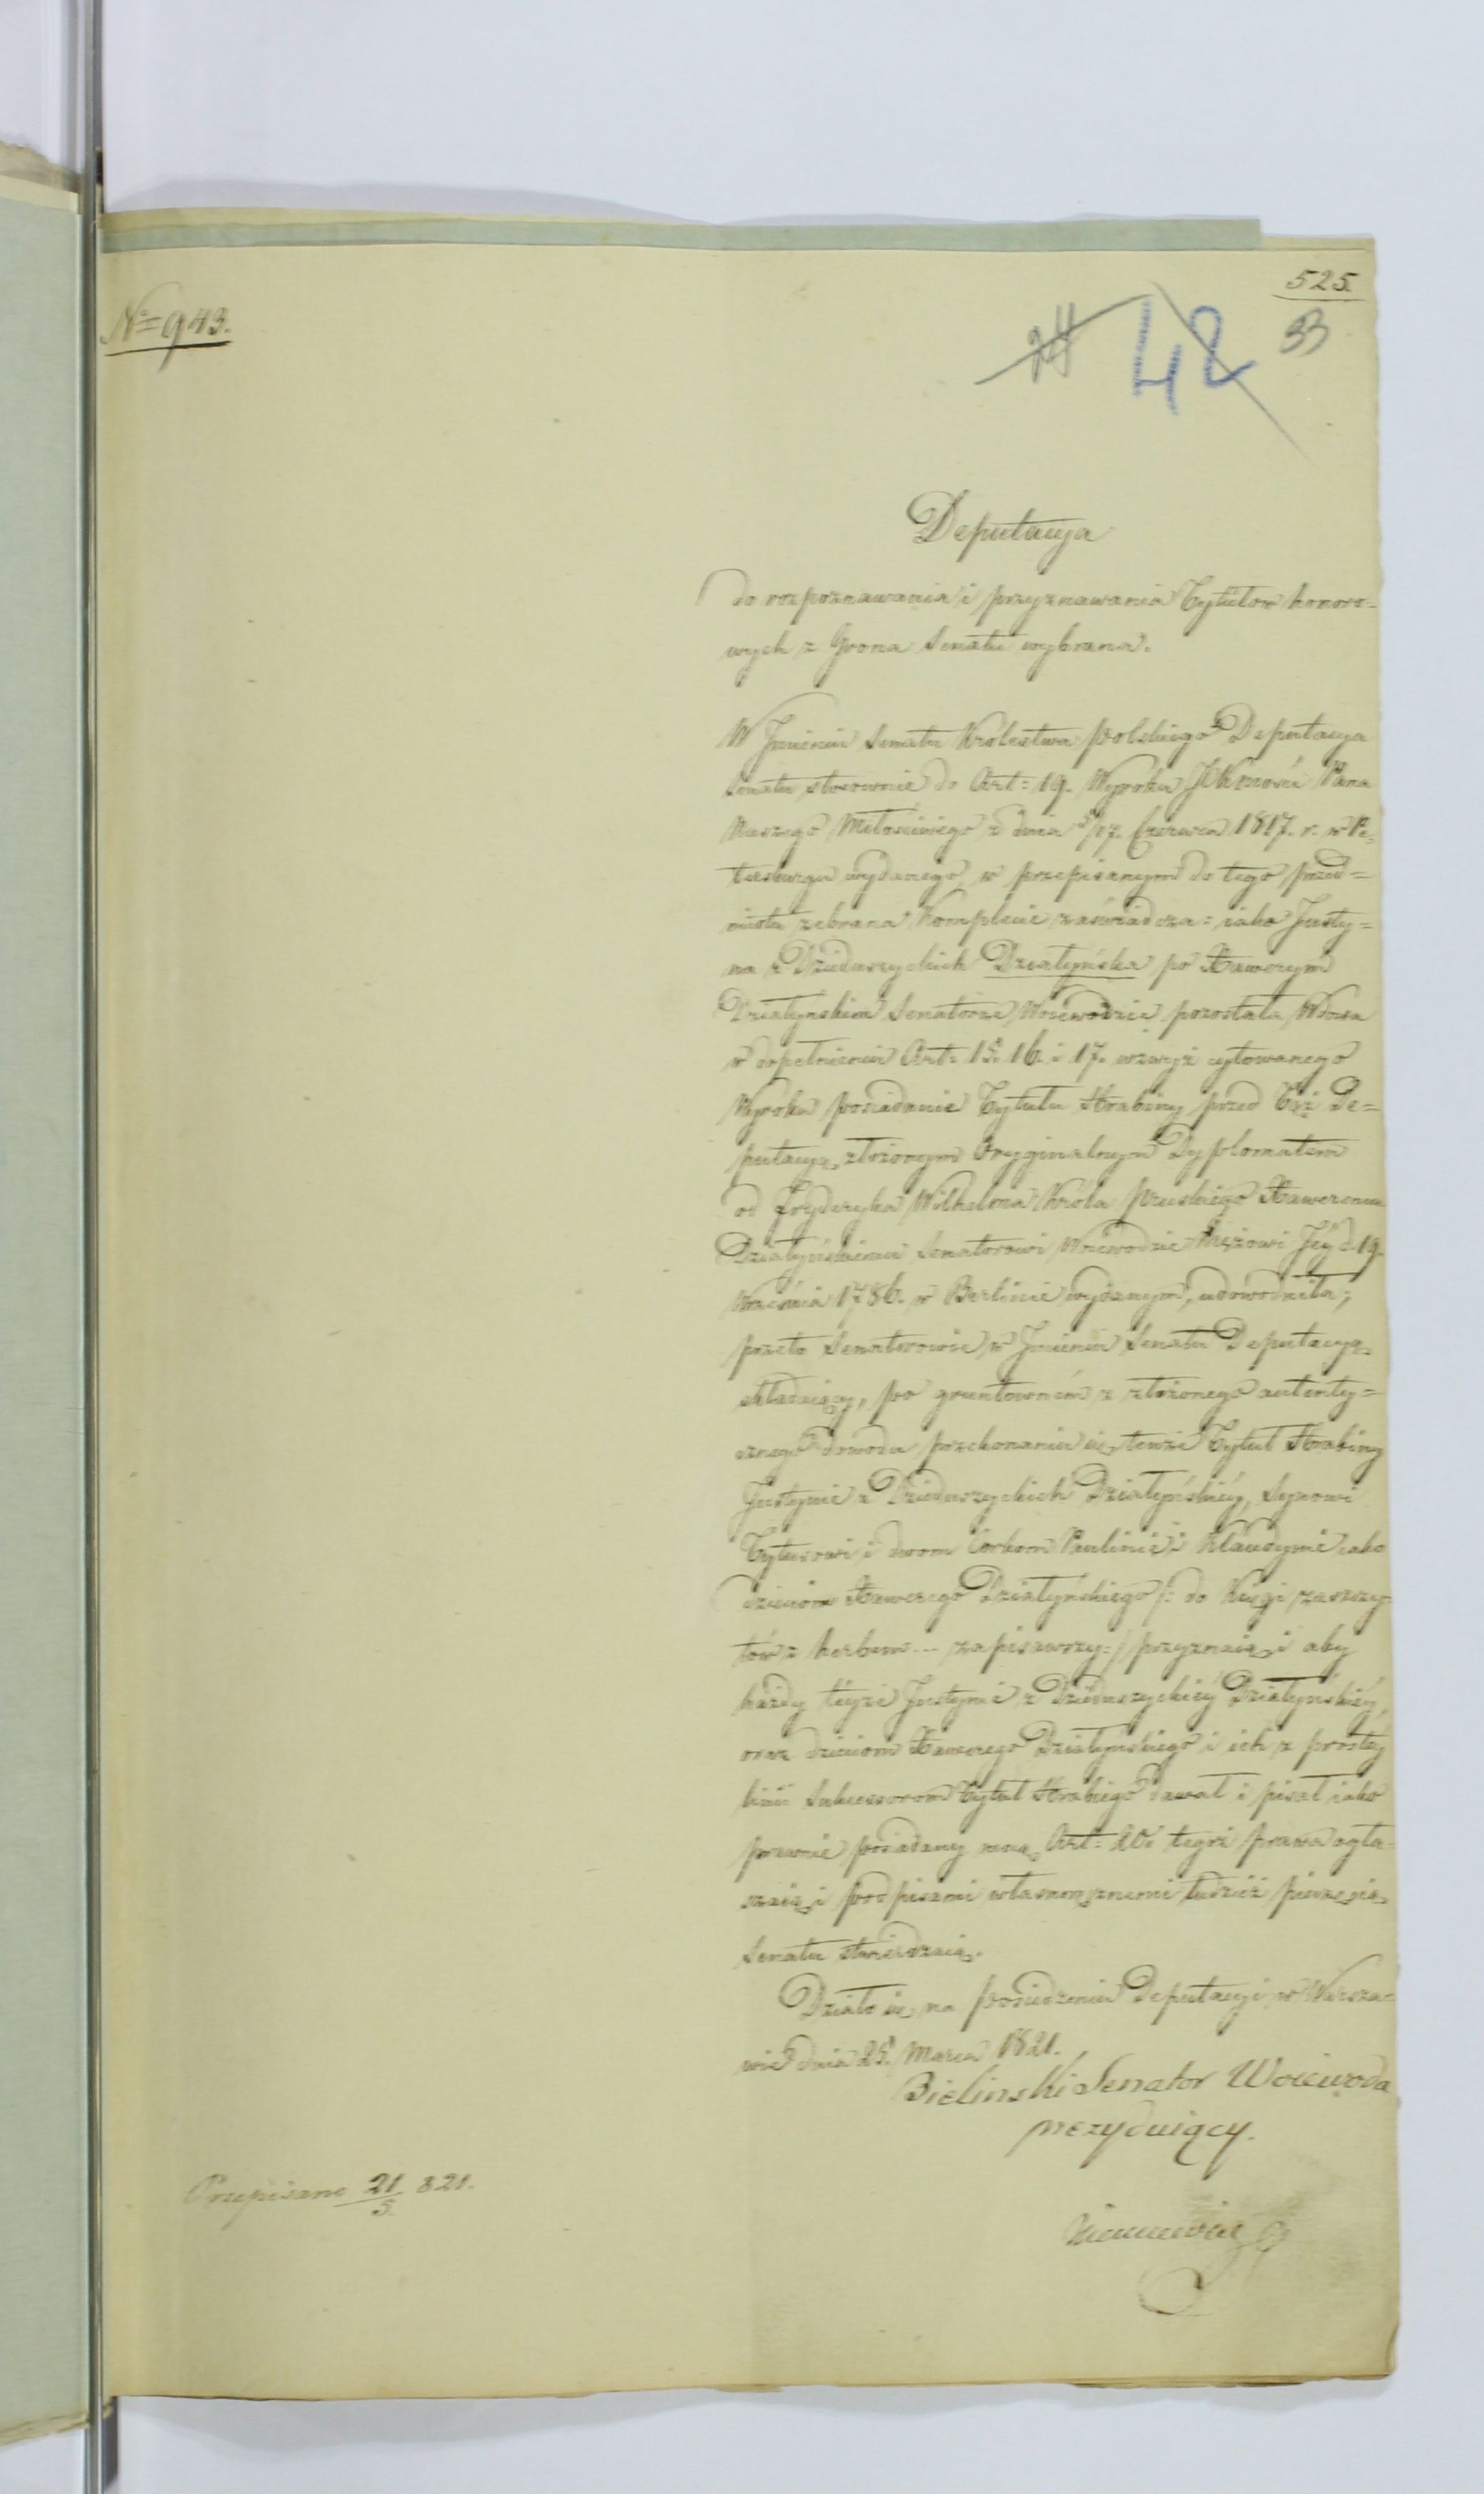 525.
No 943.
24 42 33
Deputacya
do rozpoznawania i przyznawania Tytułow honoro=
wych z Grona Senatu wybrana.
W Jmieniu Senatu Królestwa Polskiego Deputacya
Senatu stosownie do Art: 19. Wyroku JKMości Pana
Naszego Miłościwego z dnia 5/17. Czerwca 1817. r. w Pe=
tersburgu wydanego, w przepisanym do tego przed=
miotu zebrana Komplecie zaświadcza: iako Justy=
na z Dzieduszyckich Działyńska po Xawerym
Działyńskim Senatorze Woiewodzie pozostała Wdowa
w dopełnieniu Art: 15. 16. i 17. wzwyż cytowanego
Wyroku posiadanie Tytułu Hrabiny przed Też De=
putacyą złożonym Oryginalnym Dyplomatem
od Fryderyka Wilhelma Króla Pruskiego Xaweremu
Działyńskiemu Senatorowi Woiewodzie Mężowi Jey d. 19.
Września 1786. w Berlinie wydanym, udowodniła;
przeto Senatorowie w Jmieniu Senatu Deputacyą
składaiący, po gruntowném z złożonego autenty=
cznego dowodu przekonaniu się, tenże Tytuł Hrabiny
Justynie z Dzieduszyckich Działyńskiéy, Synowi
Tytusowi i dwom Corkom Paulinie i Klaudynie iako
dzieciom Xawerego Działyńskiego /: do Księgi zaszczy=
tów z herbem --- zapisawszy :/ przyznaią, i aby
każdy téyże Justynie z Dzieduszyckiéy Działyńskiéy,
oraz dzieciom Xawerego Działyńskiego i ich z prostéy
linii Sukcessorom Tytuł Hrabiego dawał i pisał iako
prawnie posiadany mocą Art: 20. tegoż prawa ogła=
szaią, i podpisami własnoręcznemi tudzież pieczęcią
Senatu stwierdzaią.
Działo się na posiedzeniu Deputacyi w Warsza=
wie dnia 25. Marca 1821.
Bielinski Senator Woiewoda
prezyduiący.
Niemcewicz
Przepisano 21/5. 821.